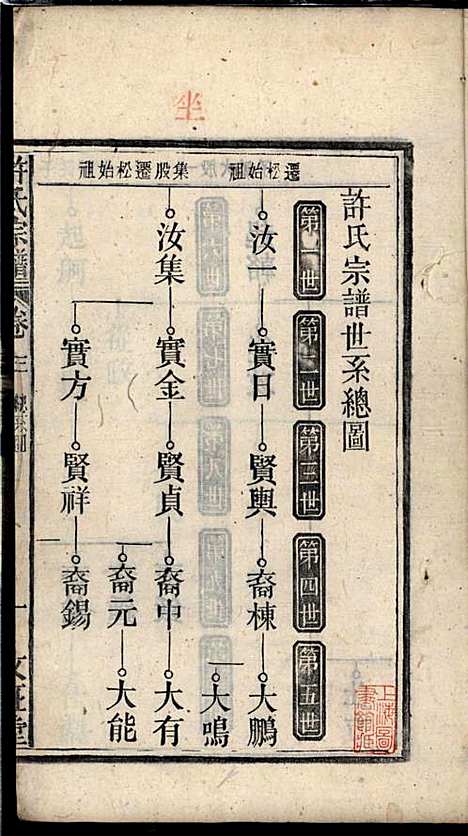 許氏宗譜世系總圖
第一世
第二世
第三世
第四世
第五世
遷松始祖
汝一
實日
賢輿
裔棟
大鵬
大鳴
集股遷松始祖
汝集
實金
賢貞
裔中
大有
裔元
大能
實方
賢祥
裔錫
許氏宗譜
卷
一
坐
上海圖書館藏